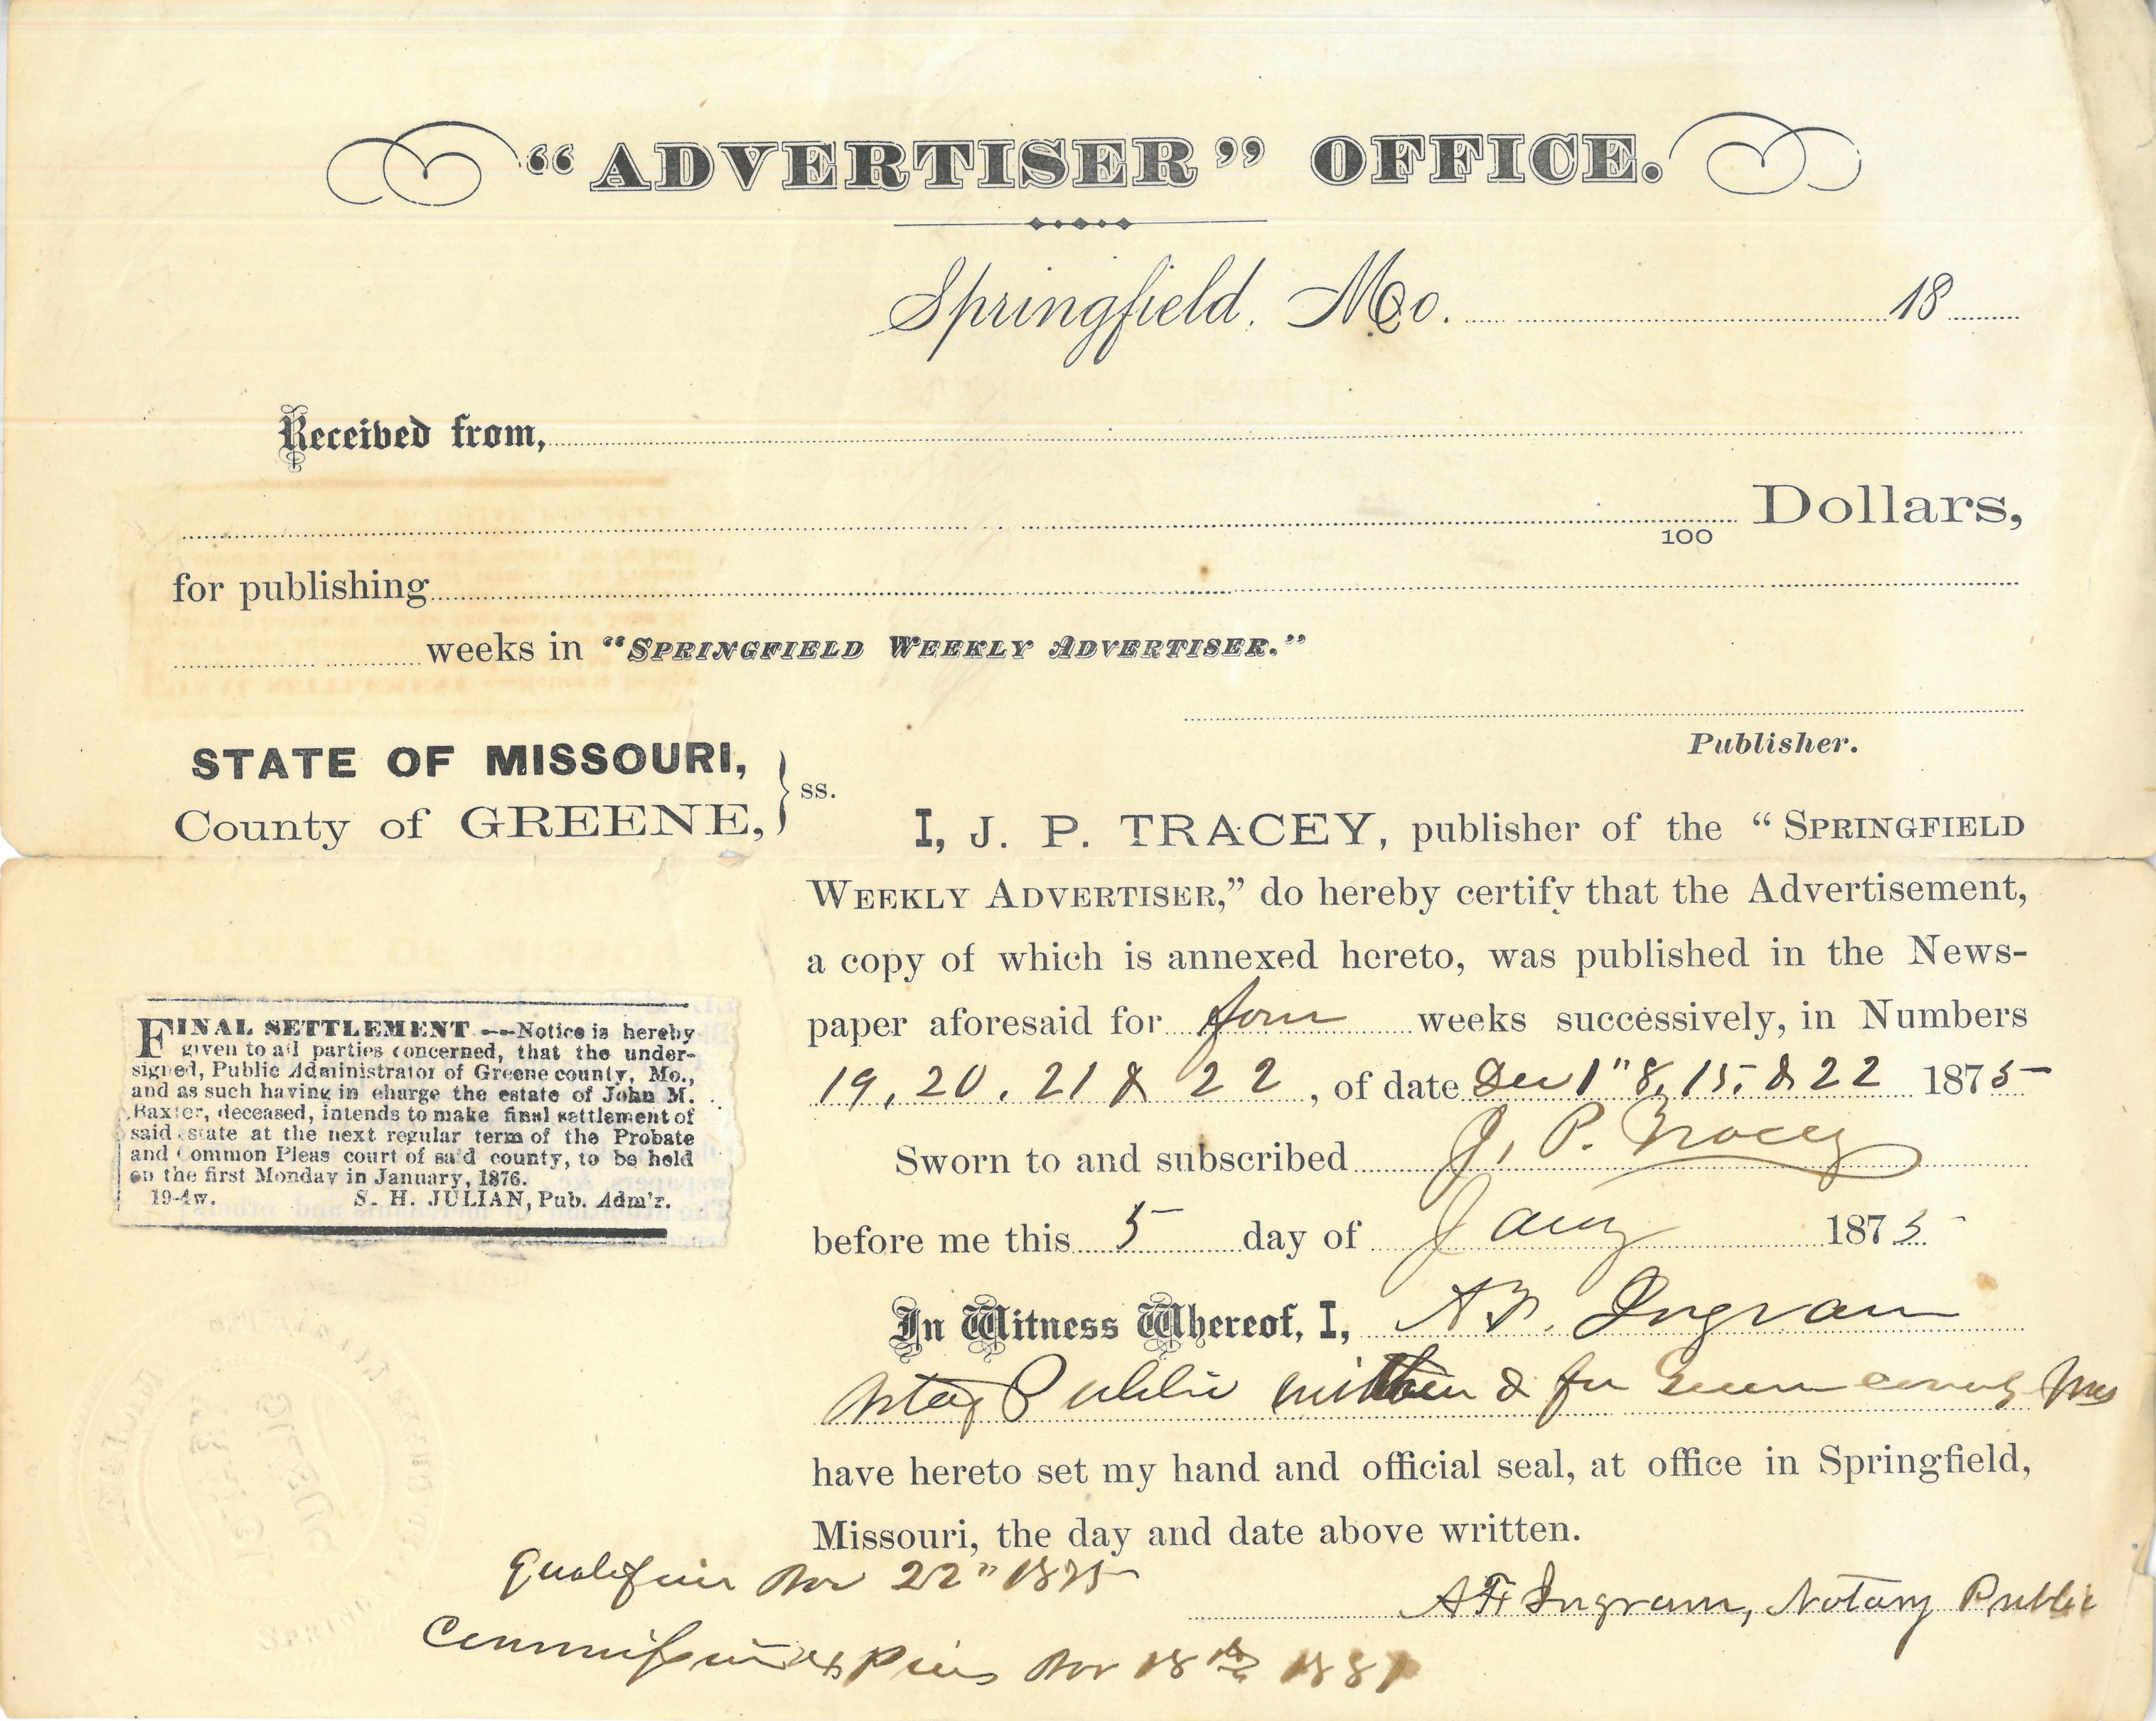 “ADVERTISER” OFFICE.
Springfield, Mo. 18
Received from,
100 Dollars,
for publishing
weeks in “SPRINGFIELD WEEKLY ADVERTISER.”
Publisher.
STATE OF MISSOURI,
County of GREENE,
ss.
I, J. P. TRACEY, publisher of the “SPRINGFIELD
WEEKLY ADVERTISER,” do hereby certify that the Advertisement,
a copy of which is annexed hereto, was published in the News-
paper aforesaid for four weeks successively, in Numbers
19, 20, 21 & 22, of date Dec 1" 8, 15, & 22 1875
Sworn to and subscribed J. P. Tracey
before me this 5 day of Jany 1875
In Witness Whereof, I, A F. Ingram
Notary Public within & for Greene County Mo
have hereto set my hand and official seal, at office in Springfield,
Missouri, the day and date above written.
A F Ingram, Notary Public
FINAL SETTLEMENT --Notice is hereby
given to all parties concerned, that the under-
signed, Public Administrator of Greene county, Mo.,
and as such having in charge the estate of John M.
Baxter, deceased, intends to make final settlement of
said estate at the next regular term of the Probate
and Common Pleas court of said county, to be held
on the first Monday in January, 1876.
19-4w. S. H. JULIAN, Pub. Adm'r.
Nov 22" 1875
Commission expires Nov 18th